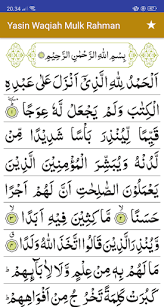 20.34
Yasin Waqiah Mulk Rahman
بِسْمِ اللّٰهِ الرَّحْمٰنِ الرَّحِيْمِ
اَلْحَمْدُ لِلّٰهِ الَّذِيْٓ اَنْزَلَ عَلٰى عَبْدِهِ
الْكِتٰبَ وَلَمْ يَجْعَلْ لَّهٗ عِوَجًا ۝١
قَيِّمًا لِّيُنْذِرَ بَأْسًا شَدِيْدًا مِّنْ
لَّدُنْهُ وَيُبَشِّرَ الْمُؤْمِنِيْنَ الَّذِيْنَ
يَعْمَلُوْنَ الصّٰلِحٰتِ اَنَّ لَهُمْ اَجْرًا
حَسَنًا ۝٢ مَّاكِثِيْنَ فِيْهِ اَبَدًا ۝٣
وَّيُنْذِرَ الَّذِيْنَ قَالُوا اتَّخَذَ اللّٰهُ وَلَدًا ۝٤
مَا لَهُمْ بِهٖ مِنْ عِلْمٍ وَّلَا لِاٰبَآئِهِمْ